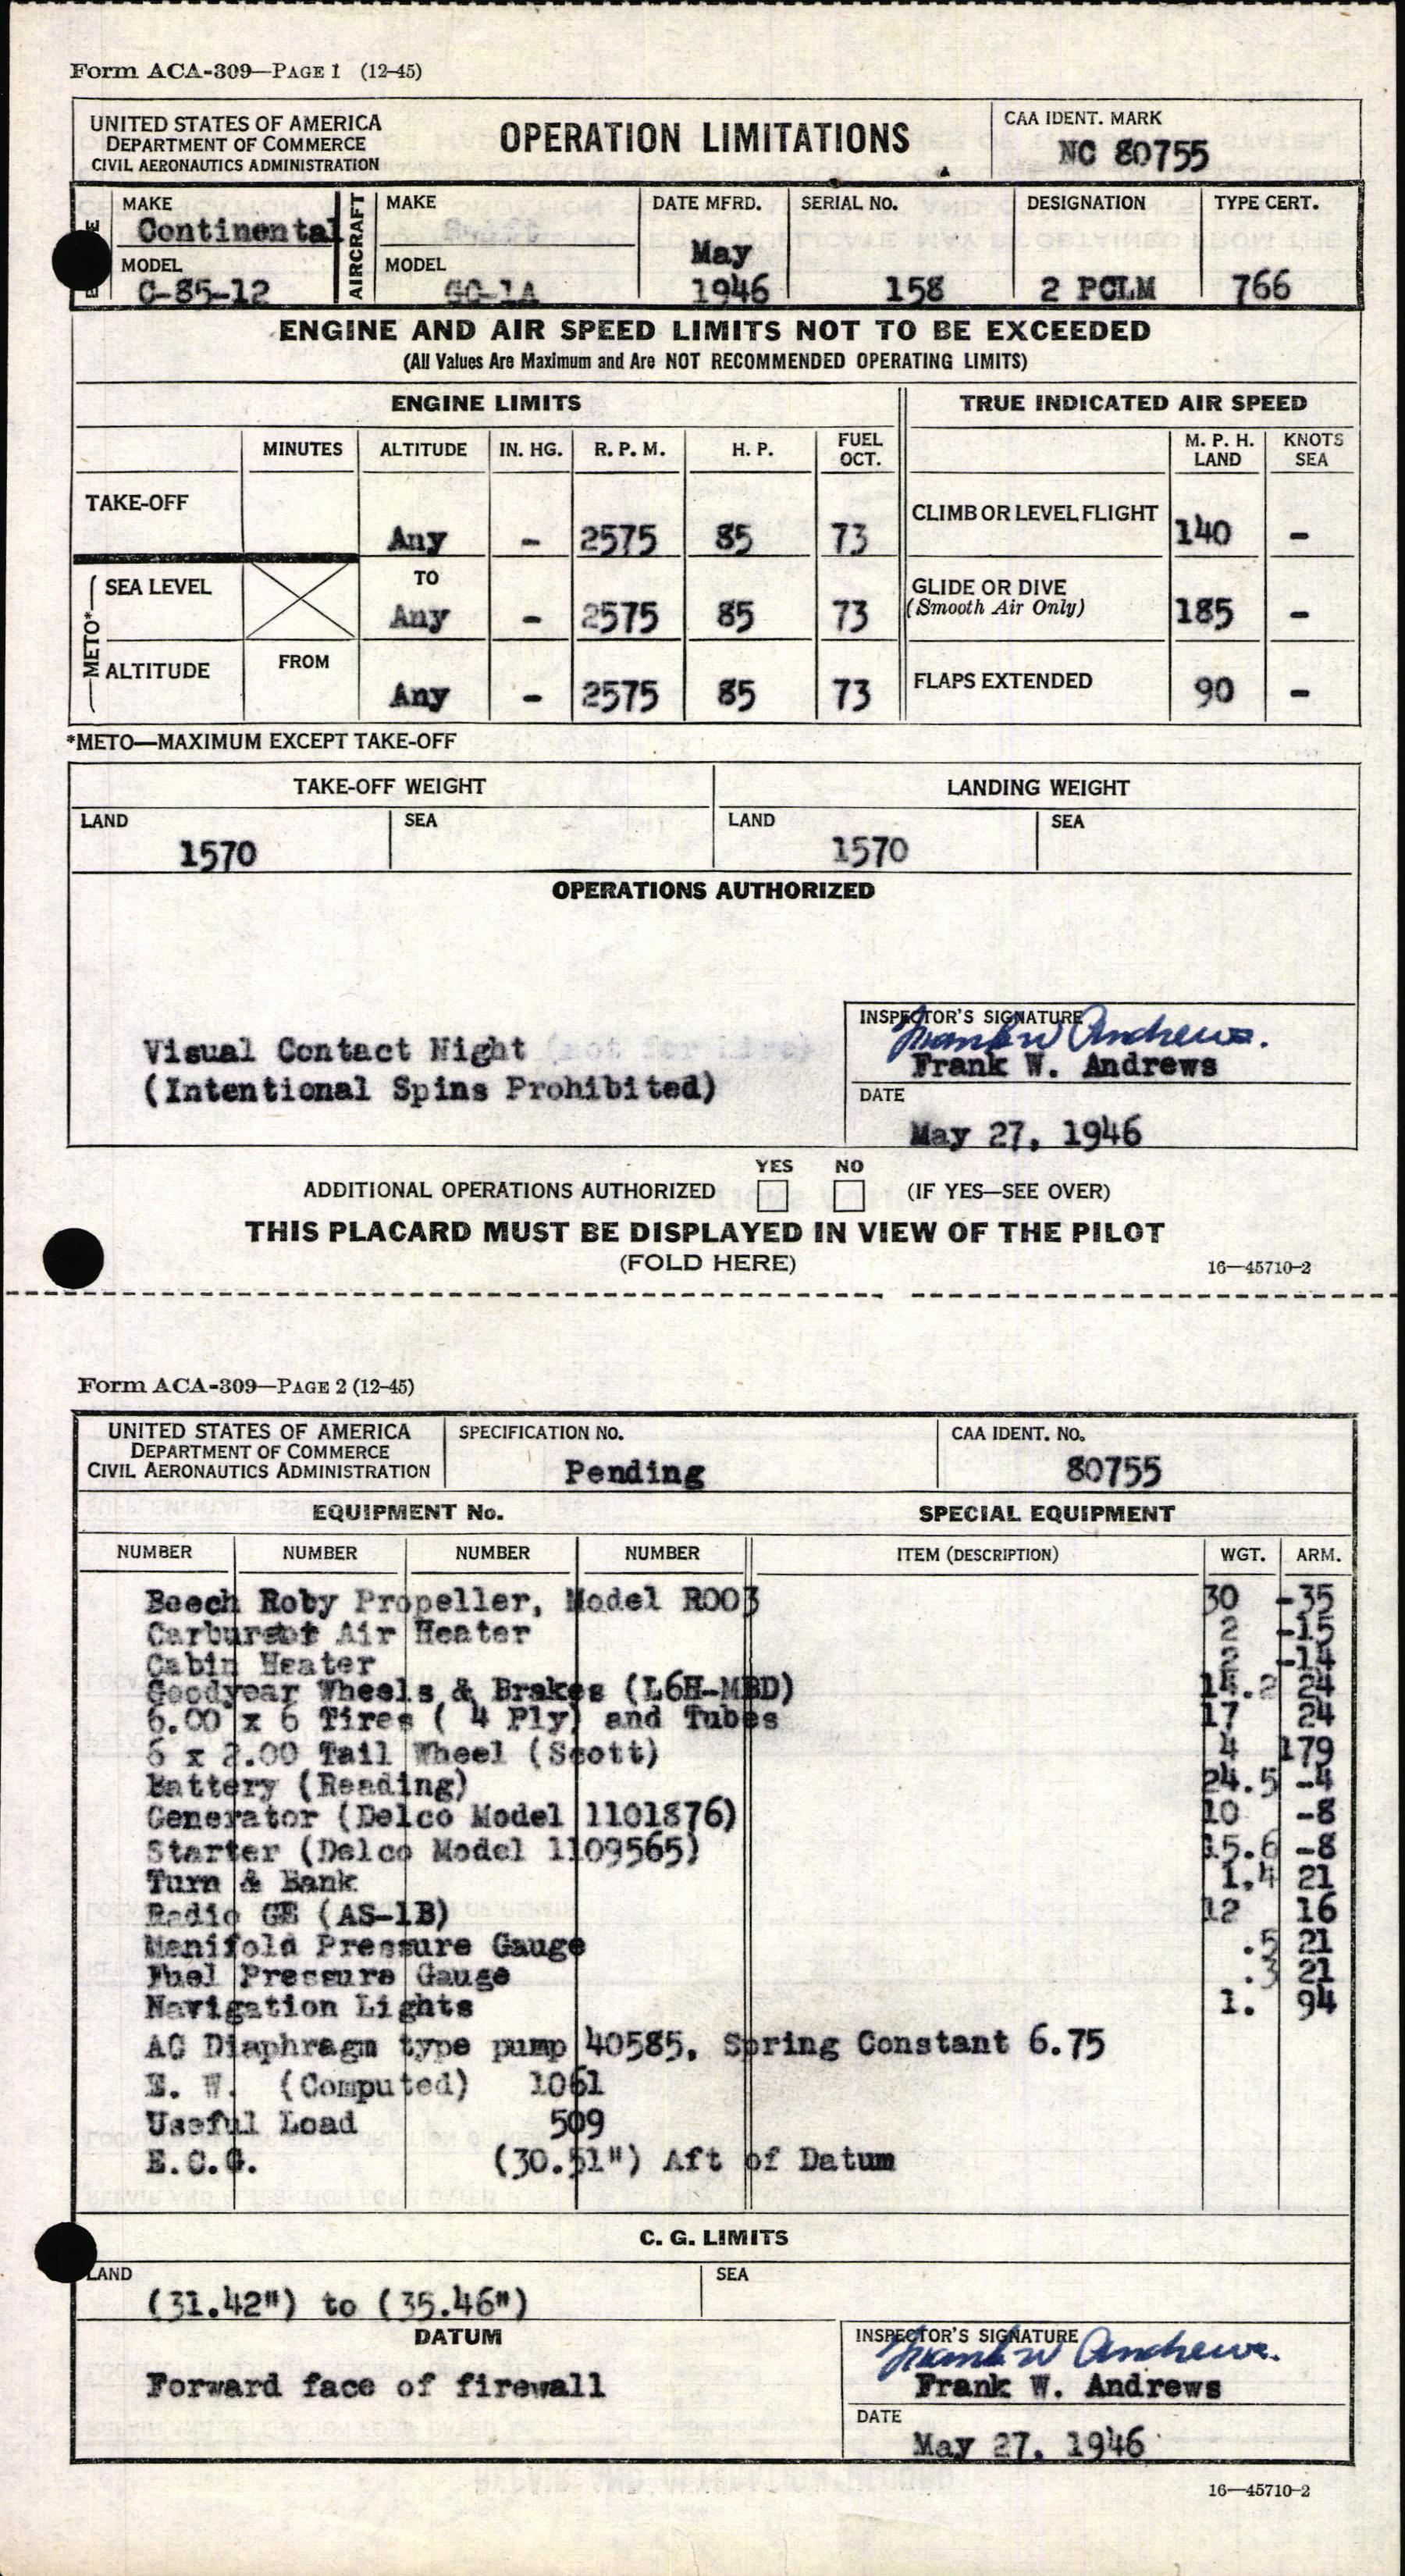 Form ACA-309—PAGE 1 (12-45)
UNITED STATES OF AMERICA
DEPARTMENT OF COMMERCE
CIVIL AERONAUTICS ADMINISTRATION
OPERATION LIMITATIONS
CAA IDENT. MARK
NC 80755
MAKE
Continental
MODEL
C-85-12
AIRCRAFT
MAKE
Swift
MODEL
GC-1A
DATE MFRD.
May
1946
SERIAL NO.
158
DESIGNATION
2 PCLM
TYPE CERT.
766
ENGINE AND AIR SPEED LIMITS NOT TO BE EXCEEDED
(All Values Are Maximum and Are NOT RECOMMENDED OPERATING LIMITS)
ENGINE LIMITS
TRUE INDICATED AIR SPEED
MINUTES ALTITUDE IN. HG. R. P. M. H. P. FUEL OCT.
M. P. H. LAND KNOTS SEA
TAKE-OFF Any - 2575 85 73
CLIMB OR LEVEL FLIGHT 140 -
METO*
SEA LEVEL TO Any - 2575 85 73
GLIDE OR DIVE (Smooth Air Only) 185 -
ALTITUDE FROM Any - 2575 85 73
FLAPS EXTENDED 90 -
*METO—MAXIMUM EXCEPT TAKE-OFF
TAKE-OFF WEIGHT LANDING WEIGHT
LAND 1570 SEA LAND 1570 SEA
OPERATIONS AUTHORIZED
Visual Contact Night (not for hire)
(Intentional Spins Prohibited)
INSPECTOR'S SIGNATURE
Frank W Andrews.
Frank W. Andrews
DATE
May 27, 1946
YES NO
ADDITIONAL OPERATIONS AUTHORIZED (IF YES—SEE OVER)
THIS PLACARD MUST BE DISPLAYED IN VIEW OF THE PILOT
(FOLD HERE)
16—45710-2
Form ACA-309—PAGE 2 (12-45)
UNITED STATES OF AMERICA
DEPARTMENT OF COMMERCE
CIVIL AERONAUTICS ADMINISTRATION
SPECIFICATION NO.
Pending
CAA IDENT. NO.
80755
EQUIPMENT No. SPECIAL EQUIPMENT
NUMBER NUMBER NUMBER NUMBER ITEM (DESCRIPTION) WGT. ARM.
Beech Roby Propeller, Model R003 30 -35
Carburetor Air Heater 2 -15
Cabin Heater 2 -14
Goodyear Wheels & Brakes (L6H-MBD) 14.2 24
6.00 x 6 Tires ( 4 Ply) and Tubes 17 24
6 x 2.00 Tail Wheel (Scott) 4 179
Battery (Reading) 24.5 -4
Generator (Delco Model 1101876) 10 -8
Starter (Delco Model 1109565) 15.6 -8
Turn & Bank 1.4 21
Radio GE (AS-1B) 12 16
Manifold Pressure Gauge .5 21
Fuel Pressure Gauge .3 21
Navigation Lights 1. 94
AC Diaphragm type pump 40585, Spring Constant 6.75
E. W. (Computed) 1061
Useful Load 509
E.C.G. (30.51") Aft of Datum
C. G. LIMITS
LAND
(31.42") to (35.46")
SEA
DATUM
Forward face of firewall
INSPECTOR'S SIGNATURE
Frank W Andrews.
Frank W. Andrews
DATE
May 27, 1946
16—45710-2